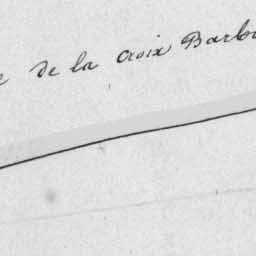 de la croix Barb